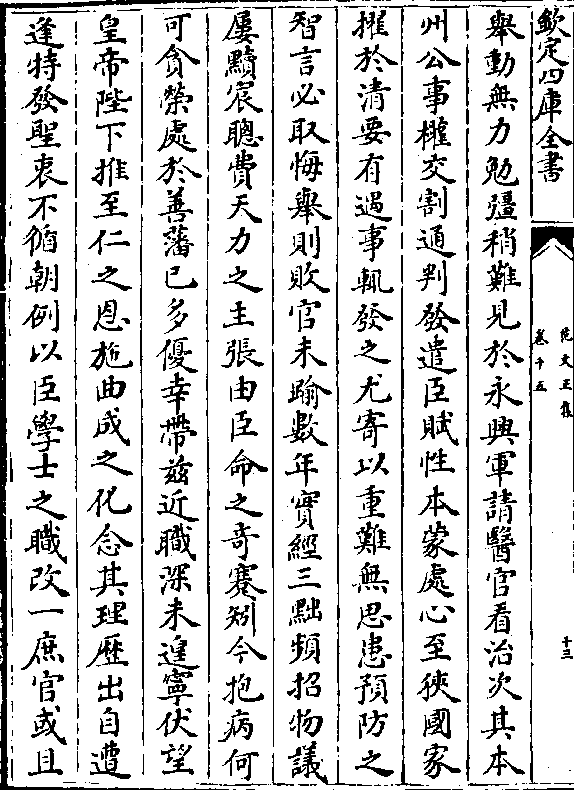 欽定四庫全書
范文正集
卷十五
十三
舉動無力勉彊稍難見於永興軍請醫官看治次其本
州公事權交割通判發遣臣賦性本蒙處心至狹國家
擢於清要有過事輒發之尤寄以重難無思患預防之
智言必取悔舉則敗官未踰數年實經三黜頻招物議
屢黷宸聰費天力之主張由臣命之竒蹇矧今抱病何
可貪榮處於善藩已多優幸帶兹近職深未遑寧伏望
皇帝陛下推至仁之恩施曲成之化念其理歴出自遭
逢特發聖衷不循朝例以臣學士之職改一庶官或且